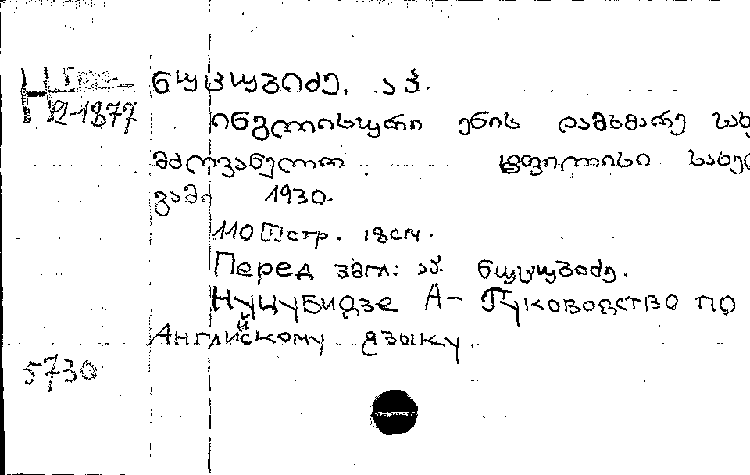 Н Груз
2-1877
ნუცუბიძე, აკ.
ინგლისური ენის დამხმარე სახ
მძღვანელო ტფილისი სახელ
გამი 1930.
110 стр. 18см.
Перед загл: აკ. ნუცუბიძე.
Нуцубидзе А- Руководство по
Английскому языку.
5730